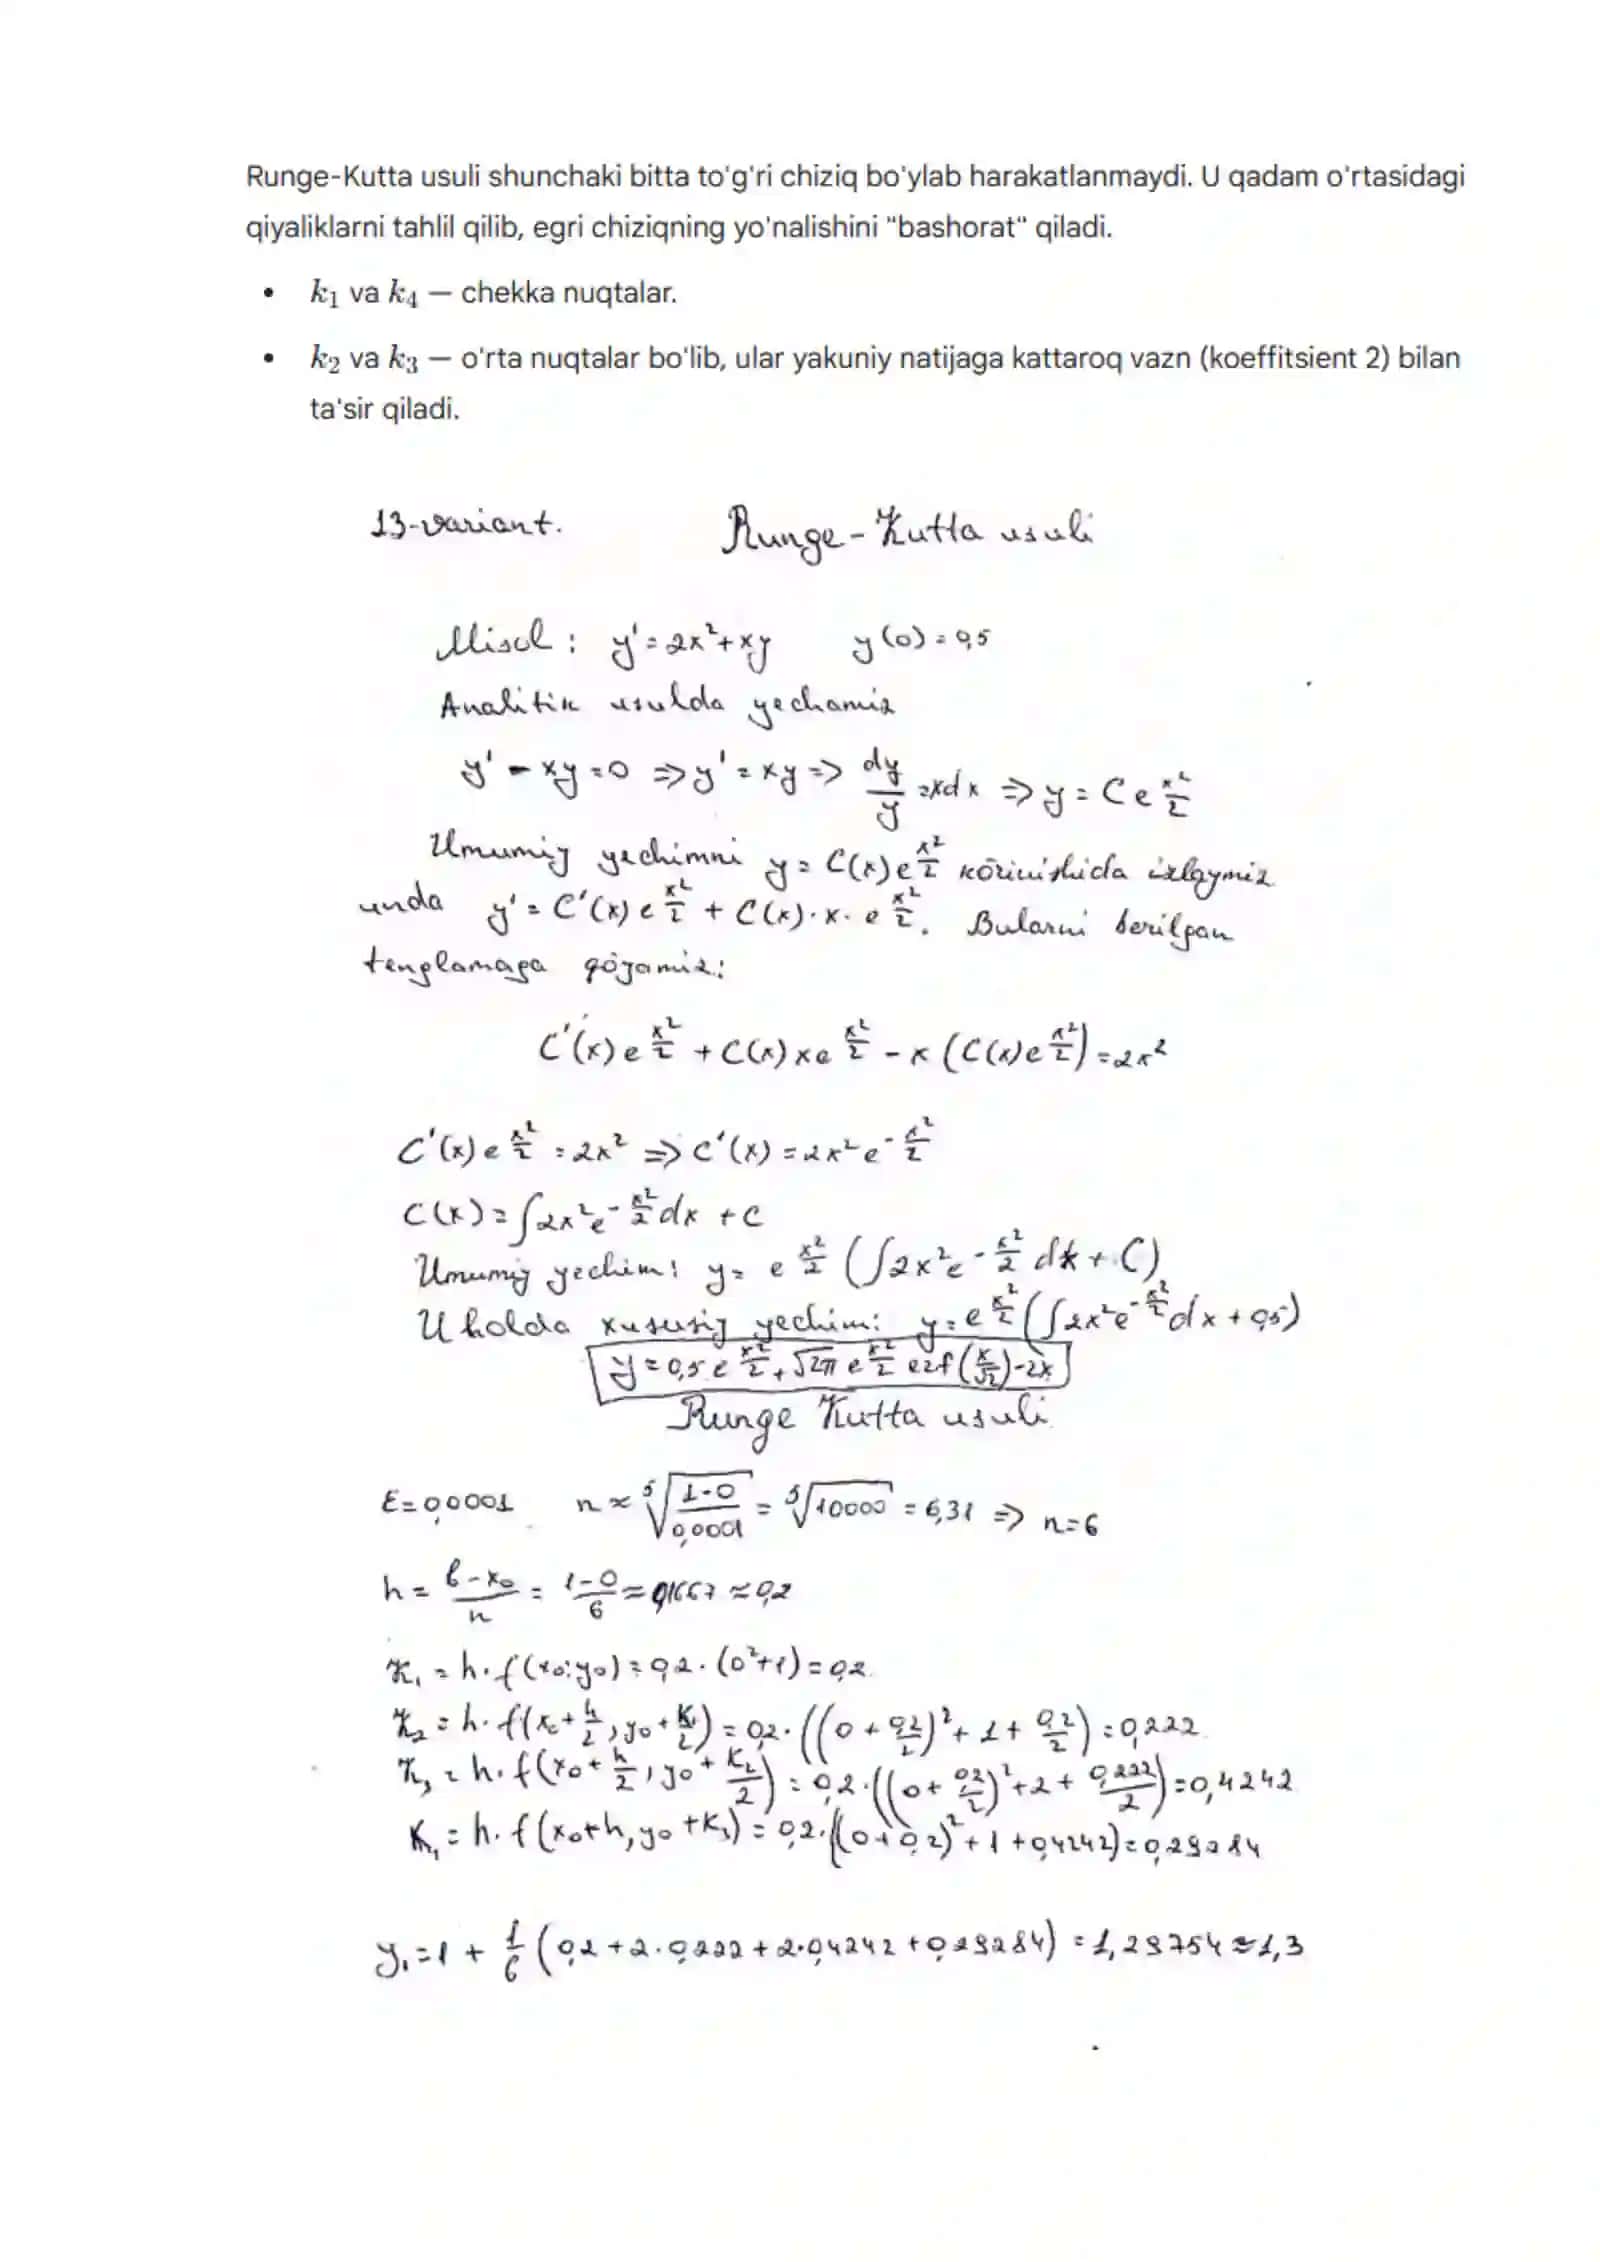 Runge-Kutta usuli shunchaki bitta to'g'ri chiziq bo'ylab harakatlanmaydi. U qadam o'rtasidagi
qiyaliklarni tahlil qilib, egri chiziqning yo'nalishini "bashorat" qiladi.
• k₁ va k₄ — chekka nuqtalar.
• k₂ va k₃ — o'rta nuqtalar bo'lib, ular yakuniy natijaga kattaroq vazn (koeffitsient 2) bilan
ta'sir qiladi.
13-variant. Runge-Kutta usuli
Misol: y' = 2x² + xy y(0) = 0,5
Analitik usulda yechamiz
y' - xy = 0 => y' = xy => dy/y = xdx => y = Ce^(x²/2)
Umumiy yechimni y = C(x)e^(x²/2) ko'rinishida izlaymiz
unda y' = C'(x)e^(x²/2) + C(x)·x·e^(x²/2). Bularni berilgan
tenglamaga qo'yamiz:
C'(x)e^(x²/2) + C(x)xe^(x²/2) - x(C(x)e^(x²/2)) = 2x²
C'(x)e^(x²/2) = 2x² => C'(x) = 2x²e^(-x²/2)
C(x) = ∫2x²e^(-x²/2)dx + C
Umumiy yechim: y = e^(x²/2)(∫2x²e^(-x²/2)dx + C)
U holda xususiy yechim: y = e^(x²/2)(∫2x²e^(-x²/2)dx + 0,5)
y = 0,5e^(x²/2) + √2π e^(x²/2) erf(x/√2) - 2x
Runge Kutta usuli
ε = 0,0001 n ≈ ⁵√((1-0)/0,0001) = ⁵√10000 = 6,31 => n = 6
h = (b-x₀)/n = (1-0)/6 ≈ 0,1667 ≈ 0,2
K₁ = h·f(x₀; y₀) = 0,2·(0²+1) = 0,2
K₂ = h·f(x₀ + h/2, y₀ + K₁/2) = 0,2·((0 + 0,2/2)² + 1 + 0,2/2) = 0,222
K₃ = h·f(x₀ + h/2, y₀ + K₂/2) = 0,2·((0 + 0,2/2)² + 2 + 0,222/2) = 0,4242
K₄ = h·f(x₀+h, y₀+K₃) = 0,2·((0+0,2)² + 1 + 0,4242) = 0,29284
y₁ = 1 + 1/6 (0,2 + 2·0,222 + 2·0,4242 + 0,29284) = 1,29754 ≈ 1,3